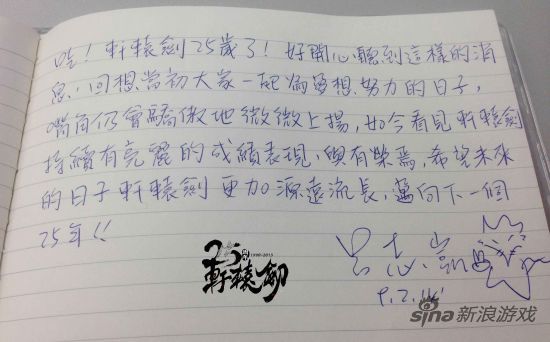 哇！軒轅劍25歲了！好開心聽到這樣的消
息，回想當初大家一起為夢想努力的日子，
嘴角仍會驕傲地微微上揚，如今看見軒轅劍
持續有亮麗的成績表現，與有榮焉，希望未來
的日子軒轅劍更加源遠流長，邁向下一個
25年!!
25
1990-2015
軒轅劍
吳志
sina新浪游戏